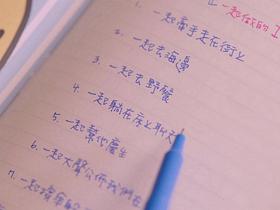 一起做的
1. 一起牽手走在街上
2. 一起去海邊
3. 一起去野餐
4. 一起躺在床上聊天
5. 一起幫他慶生
6. 一起大聲公佈我們在
7. 一起